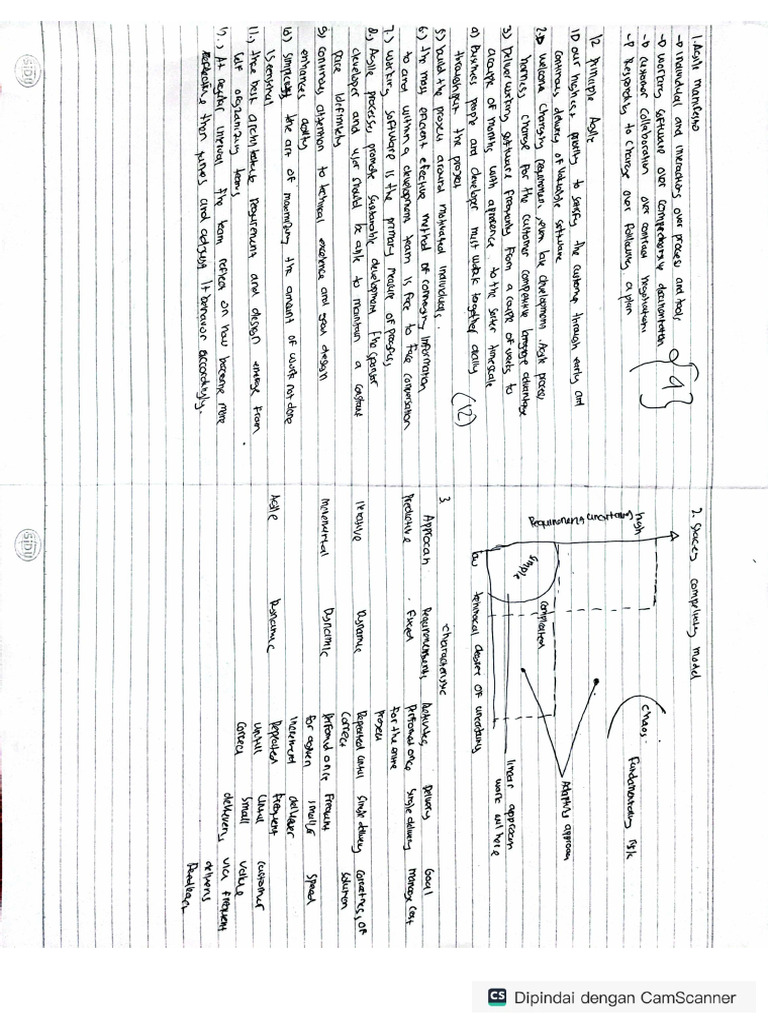 1. Agile manifesto
→ individual and interactions over process and tools
→ working software over comprehensive documentation
→ customer collaboration over contract negotiation
→ Responding to change over following a plan
{4}
12 principle Agile
1) our highest priority to satisfy the customer through early and
continous delivery of valuable software
2) welcome changing requirement, even late development. Agile process
harness change for the customer competitive advantage
3) Deliver working software frequently from a couple of weeks to
a couple of months with a preference to the shorter timescale
4) Business people and developer must work together daily
throughout the project
(12)
5) build the project around motivated individuals.
6) the most efficient effective method of conveying information
to and within a development team is face to face conversation
7.) working software is the primary measure of progress
8. Agile processes promote sustainable development. The sponsor
developer and user should be able to maintain a constant
pace idifinitely
9) continous attention to technical excellence and good design
enhances agility
10) simplicity the art of maximizing the amount of work not done
is essential
11.) the best architecture requirement and design emerge from
self organizing teams
12.) At regular interval the team reflect on how become more
effective then tunes and adjust it behavior accordingly.
2. Stacey complexity model
high
Requirements uncertainty
low
simple
complicated
chaos
Fundamentally risk
Adaptive approach
linear approach
work well here
technical degree of uncertainty
3. characteristic
Approach Requirements Activities Delivery Goal
Predictive Fixed Performed once for the entire project Single delivery manage cost
iterative Dynamic Repeated until correct Single delivery correctness of solution
incremental Dynamic Performed once for a given increment Frequent smaller deliver speed
Agile Dynamic Repeated untill correct Frequent small delivery customer value via frequent delivery feedback
SIDU
SIDU
CS Dipindai dengan CamScanner